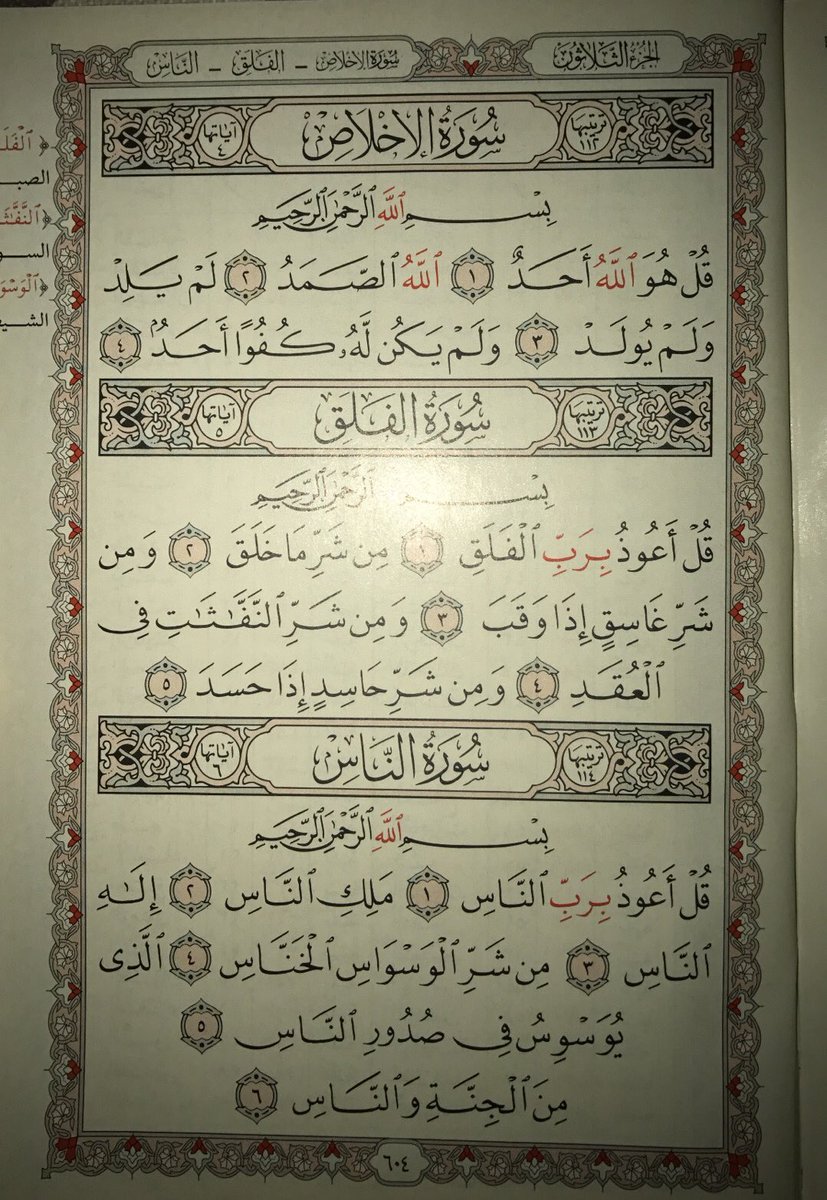 الجزء الثلاثون
سورة الإخلاص - الفلق - الناس
ترتيبها ١١٢ سُورَةُ الإِخْلَاصِ آياتها ٤
بِسْمِ ٱللَّهِ ٱلرَّحْمَٰنِ ٱلرَّحِيمِ
قُلْ هُوَ ٱللَّهُ أَحَدٌ ١ ٱللَّهُ ٱلصَّمَدُ ٢ لَمْ يَلِدْ
وَلَمْ يُولَدْ ٣ وَلَمْ يَكُن لَّهُۥ كُفُوًا أَحَدٌۢ ٤
ترتيبها ١١٣ سُورَةُ الفَلَقِ آياتها ٥
بِسْمِ ٱلرَّحْمَٰنِ ٱلرَّحِيمِ
قُلْ أَعُوذُ بِرَبِّ ٱلْفَلَقِ ١ مِن شَرِّ مَا خَلَقَ ٢ وَمِن
شَرِّ غَاسِقٍ إِذَا وَقَبَ ٣ وَمِن شَرِّ ٱلنَّفَّٰثَٰتِ فِى
ٱلْعُقَدِ ٤ وَمِن شَرِّ حَاسِدٍ إِذَا حَسَدَ ٥
ترتيبها ١١٤ سُورَةُ النَّاسِ آياتها ٦
بِسْمِ ٱللَّهِ ٱلرَّحْمَٰنِ ٱلرَّحِيمِ
قُلْ أَعُوذُ بِرَبِّ ٱلنَّاسِ ١ مَلِكِ ٱلنَّاسِ ٢ إِلَٰهِ
ٱلنَّاسِ ٣ مِن شَرِّ ٱلْوَسْوَاسِ ٱلْخَنَّاسِ ٤ ٱلَّذِى
يُوَسْوِسُ فِى صُدُورِ ٱلنَّاسِ ٥
مِنَ ٱلْجِنَّةِ وَٱلنَّاسِ ٦
٦٠٤